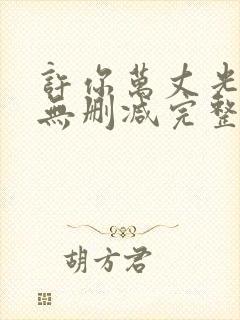 許你萬丈光
無刪減完整
胡方君